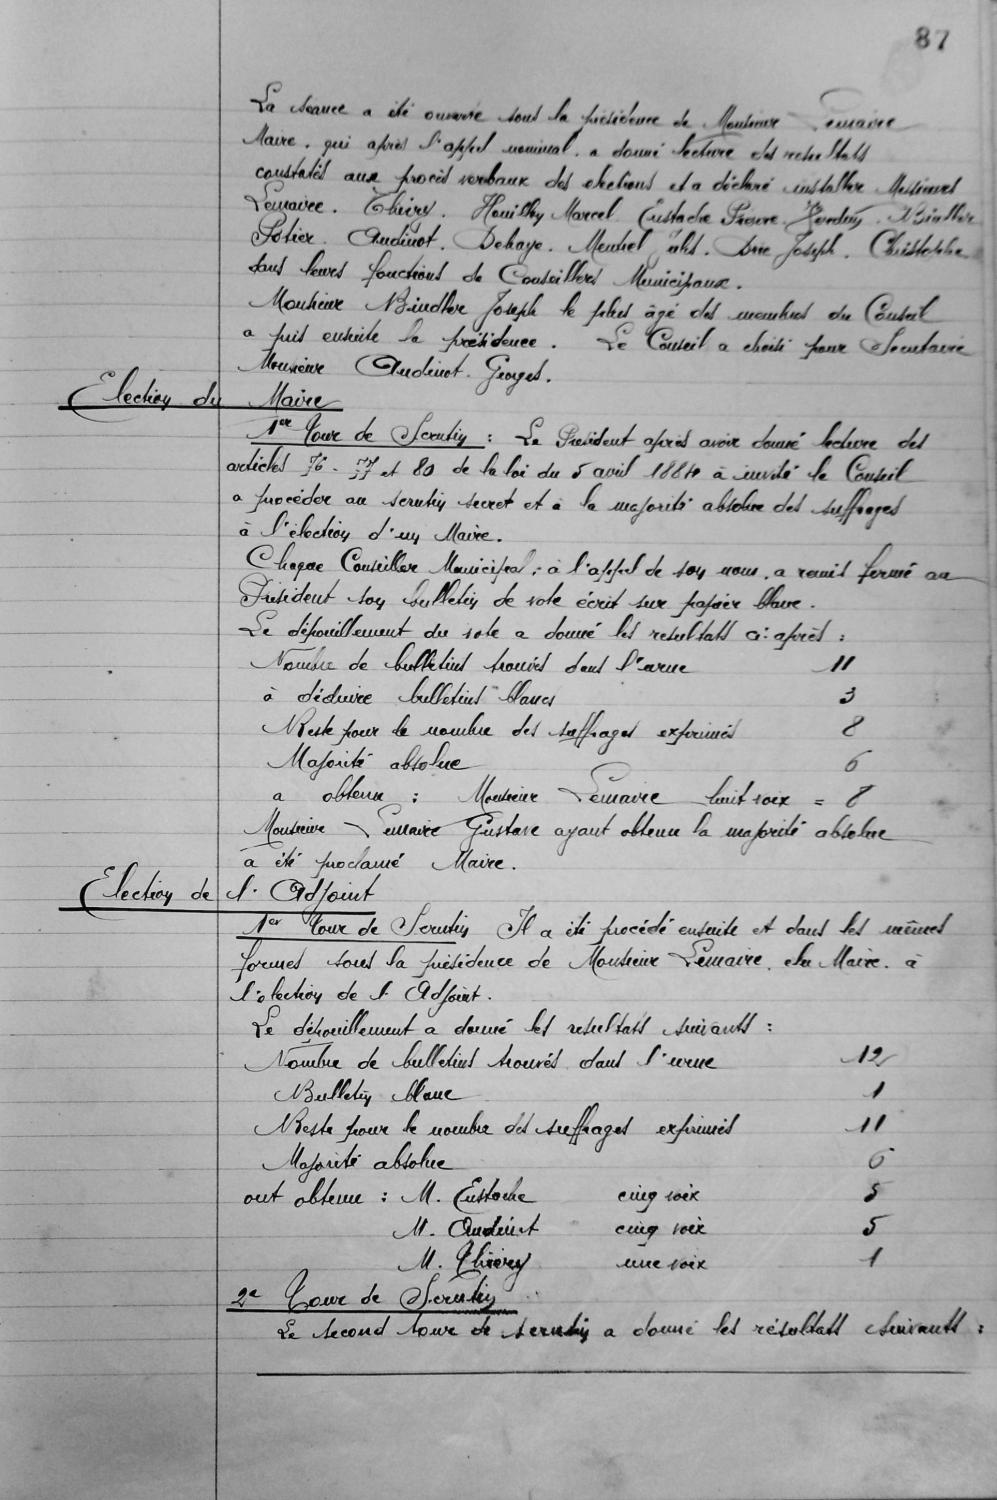 87
La séance a été ouverte sous la présidence de Monsieur Lemaire
Maire, qui après l'appel nominal, a donné lecture des resultats
constatés aux procès verbaux des élections et a déclaré installer Messieurs
Lemaire. Thiéry. Houillon Marcel. Eustache Pierre. Bindler
Potier. Audinot. Dehaye. Menhel Jules. Joseph. Christophe
dans leurs fonctions de Conseillers Municipaux.
Monsieur Bindler Joseph le plus âgé des membres du Conseil
a pris ensuite la présidence. Le Conseil a choisi pour Secrétaire
Monsieur Audinot Georges.
Election du Maire
1er Tour de Scrutin : Le Président après avoir donné lecture des
articles 76 - 77 et 80 de la loi du 5 avril 1884 à invité le Conseil
a procéder au scrutin secret et à la majorité absolue des suffrages
à l'élection d'un Maire.
Chaque Conseiller Municipal, à l'appel de son nom, a remis fermé au
Président son bulletin de vote écrit sur papier blanc.
Le dépouillement du vote a donné les resultats ci-après :
Nombre de bulletins trouvés dans l'urne 11
à déduire bulletins blancs 3
Reste pour le nombre des suffrages exprimés 8
Majorité absolue 6
a obtenu : Monsieur Lemaire huit voix = 8
Monsieur Lemaire Gustave ayant obtenu la majorité absolue
a été proclamé Maire.
Election de l'Adjoint
1er Tour de Scrutin Il a été procédé ensuite et dans les mêmes
formes sous la présidence de Monsieur Lemaire, élu Maire, à
l'élection de l'Adjoint.
Le dépouillement a donné les resultats suivants :
Nombre de bulletins trouvés dans l'urne 12
Bulletin blanc 1
Reste pour le nombre des suffrages exprimés 11
Majorité absolue 6
ont obtenu : M. Eustache cinq voix 5
M. Audinot cinq voix 5
M. Thiéry une voix 1
2e Tour de Scrutin
Le second tour de scrutin a donné les résultats suivants :